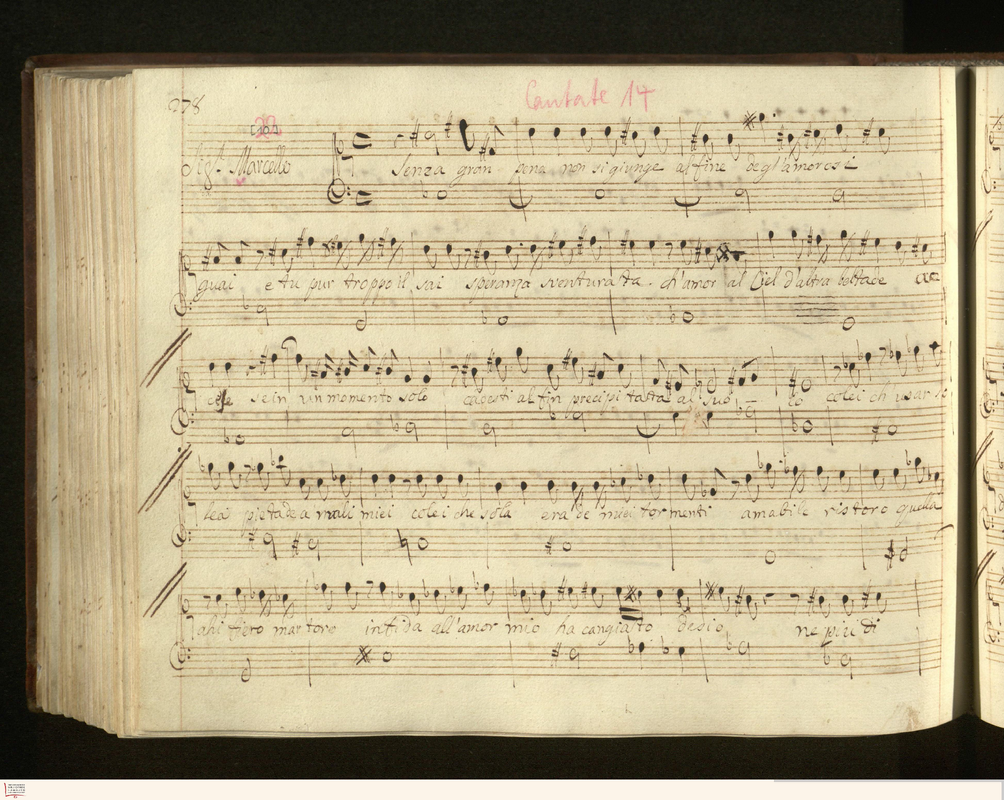 278
Cantate 14
22
Marcello
Senza gran pena non si giunge al fine degl'amorosi
guai e tu pur troppo il sai speranza sventurata ch'amor al Ciel d'altra beltade
se in un momento solo cadesti al fin precipitasta al suo lo colei ch usar
lea pietade a mali miei colei che sola era de miei tormenti amabile ristoro quella
ahi fiero martoro infida all'amor mio ha cangiato desio ne piu di